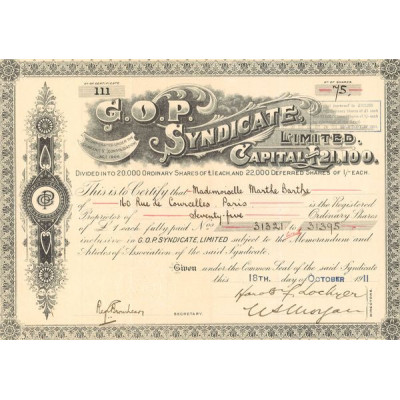 Nº OF CERTIFICATE
111
Nº OF SHARES
75
G.O.P.
SYNDICATE,
LIMITED.
CAPITAL £21,100.
DIVIDED INTO 20,000 ORDINARY SHARES OF £1 EACH AND 22,000 DEFERRED SHARES OF 1/- EACH.
This is to Certify that Mademoiselle Marthe Barthe
of 160 Rue de Courcelles Paris is the Registered
Proprietor of Seventy five Ordinary Shares
of £1 each fully paid Nos 31321 to 31395
inclusive in G.O.P. SYNDICATE, LIMITED subject to the Memorandum and
Articles of Association of the said Syndicate.
Given under the Common Seal of the said Syndicate
this 18TH. day of OCTOBER 1911